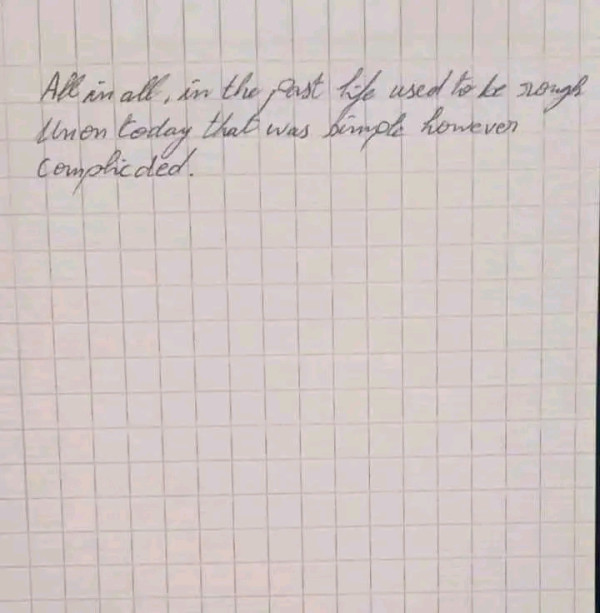 All in all, in the past life used to be rough
Unon today that was simple however
complicded.